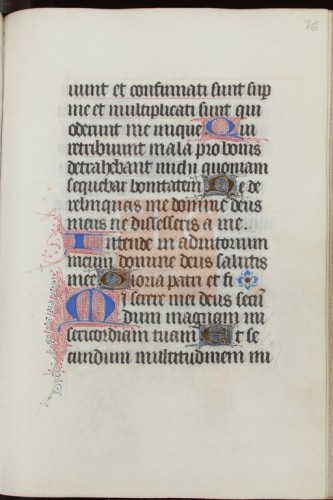 76
uunt et confirmati sunt sup
me et multiplicati sunt qui
oderunt me inique Qui
retribuunt mala pro bonis
detrahebant michi quoniam
sequebar bonitatem Ne de
relinquas me domine deus
meus ne discesseris a me.
Intende in adiutorium
meum domine deus salutis
mee Gloria patri et fi
Miserere mei deus secun
dum magnam mi
sericordiam tuam Et se
cundum multitudinem mi